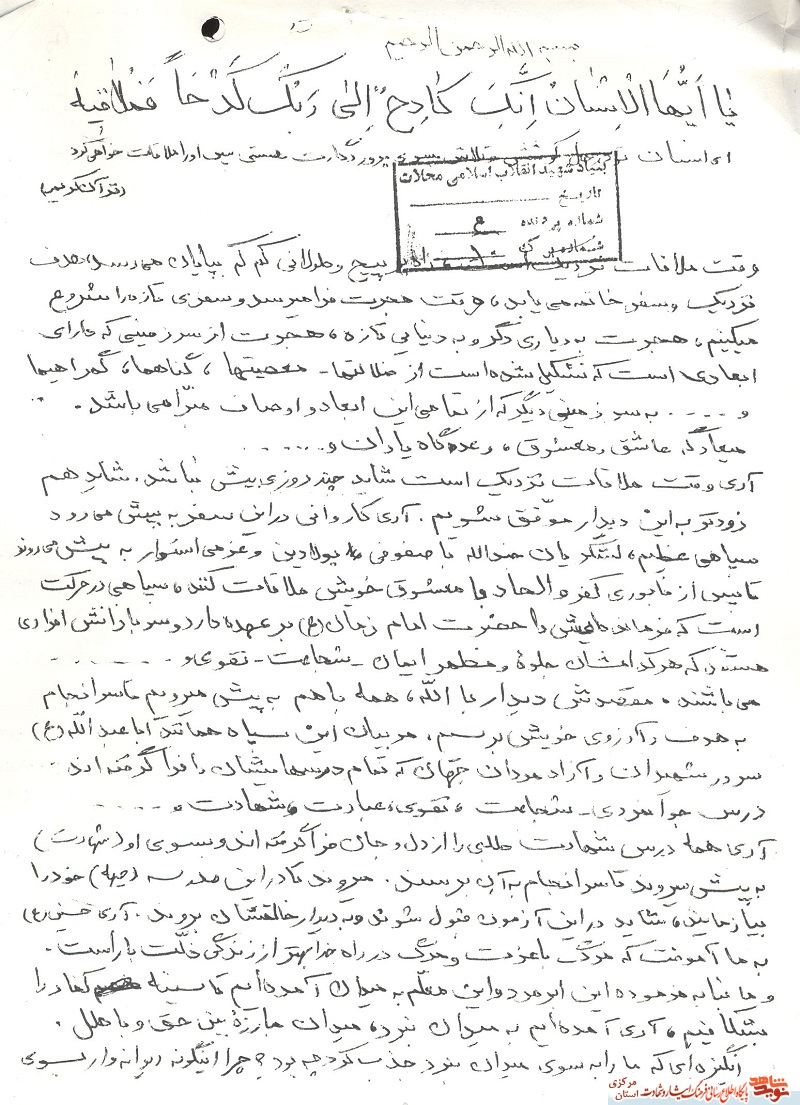 بسم الله الرحمن الرحیم
یا اَیُّهَا الْاِنْسٰانُ اِنَّکَ کٰادِحٌ اِلیٰ رَبِّکَ کَدْحَاً فَمُلٰاقیهِ
ای انسان تو کوشش و تلاش بسوی پروردگارت هستی پس او را ملاقات خواهی کرد
(قرآن کریم)
بنیاد شهید انقلاب اسلامی محلات
تاریخ
شماره پرونده ع
وقت ملاقات نزدیک است پیچ و طولانی کم کم بپایان می رسد، هدف
نزدیک و سفر خاتمه می یابد، وقت هجرت فرا میرسد و سفری تازه را شروع
میکنیم، هجرت به دیاری دگر و به دنیایی تازه، هجرت از سرزمینی که دارای
ابعادی است که تشکیل شده است از ضلالتها - معصیتها، گناهها، گمراهیها
و .... به سرزمینی دیگر که از تمامی این ابعاد و اوصاف مبرّا می باشد.
میعادگه عاشق و معشوق، وعدگاه یاران و .....
آری وقت ملاقات نزدیک است شاید چند روزی بیش نباشد. شاید هم
زودتر به این دیدار موّفق شویم. آری کاروانی در این سفر به پیش می رود
سپاهی عظیم، لشگریان جندالله با صفوفی پولادین و عزمی استوار به پیش می روند
تا پس از نابودی کفر و الحاد با معشوق خویش ملاقات کنند، سپاهی در حرکت
است که فرماندهیش را حضرت امام زمان (ع) بر عهده دارد و سربازانش افرادی
هستند که هر کدامشان جلوهٔ و مظهر ایمان - شجاعت - تقوی و .....
می باشند، مقصدش دیدار با اللّه، همه با هم به پیش میرویم تا سرانجام
به هدف و آرزوی خویش برسیم، مربیان این سپاه همانند ابا عبداللّه (ع)
سرور شهیدان و آزاد مردان جهان که تمام درسهایشان را فرا گرفته اند
درس جوانمردی - شجاعت، تقوی، عبادت و شهادت و .....
آری همه درس شهادت طلبی را از دل و جان فرا گرفته اند و بسوی او (شهادت)
به پیش میروند تا سرانجام به آن برسند. میروند تا در این مدرسه (جبهه) خود را
بیازمایند، شاید در این آزمون قبول شوند و به دیدار خالقشان بروند. آری حسین (ع)
به ما آموخت که مرگ با عزت و مرگ در راه خدا بهتر از زندگی ذلّت بار است.
و ما بنا به فرموده این ابر مرد و این معلّم به میدان آمده ایم تا سینه کفار را
بشکافیم، آری آمده ایم به میدان نبرد، میدان مبارزهٔ بین حق و باطل.
انگیزه ای که ما را به سوی میدان نبرد جذب کرد چه بود؟ چرا اینگونه دیوانه وار بسوی
نوید شاهد پایگاه اطلاع رسانی فرهنگ ایثار و شهادت استان مرکزی